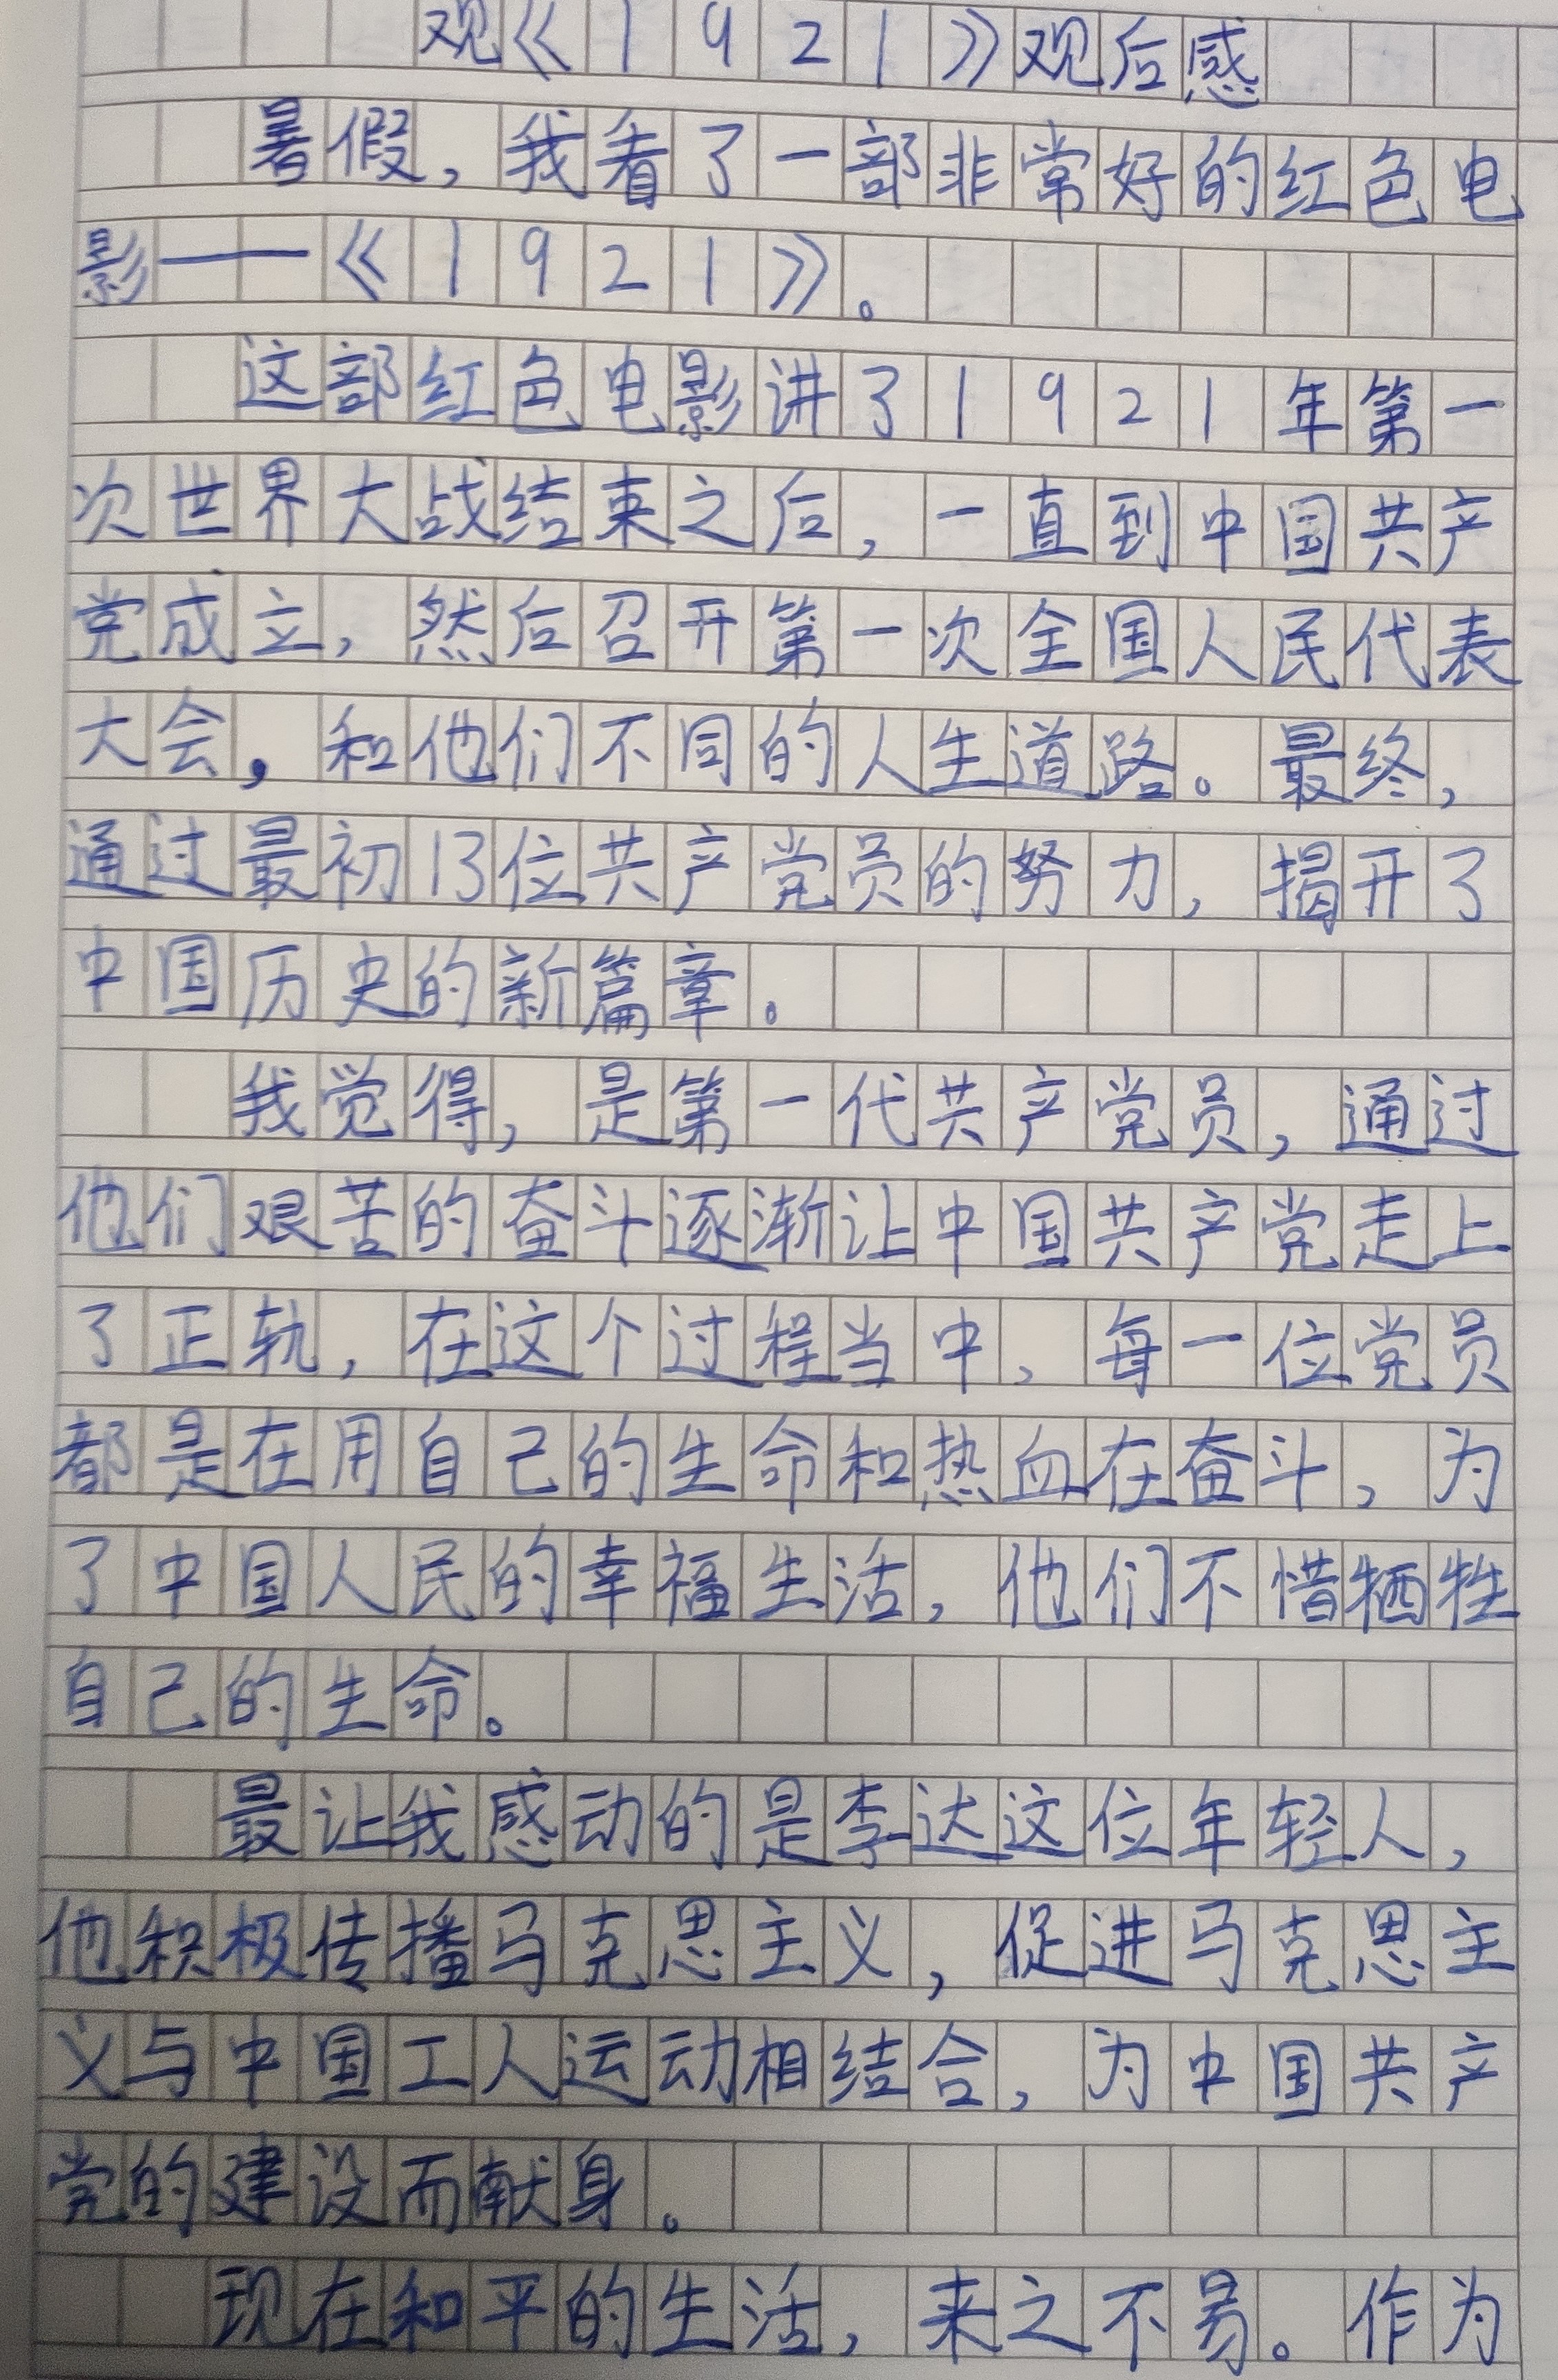 观《1921》观后感
暑假，我看了一部非常好的红色电
影——《1921》。
这部红色电影讲了1921年第一
次世界大战结束之后，一直到中国共产
党成立，然后召开第一次全国人民代表
大会，和他们不同的人生道路。最终，
通过最初13位共产党员的努力，揭开了
中国历史的新篇章。
我觉得，是第一代共产党员，通过
他们艰苦的奋斗逐渐让中国共产党走上
了正轨，在这个过程当中，每一位党员
都是在用自己的生命和热血在奋斗，为
了中国人民的幸福生活，他们不惜牺牲
自己的生命。
最让我感动的是李达这位年轻人，
他积极传播马克思主义，促进马克思主
义与中国工人运动相结合，为中国共产
党的建设而献身。
现在和平的生活，来之不易。作为